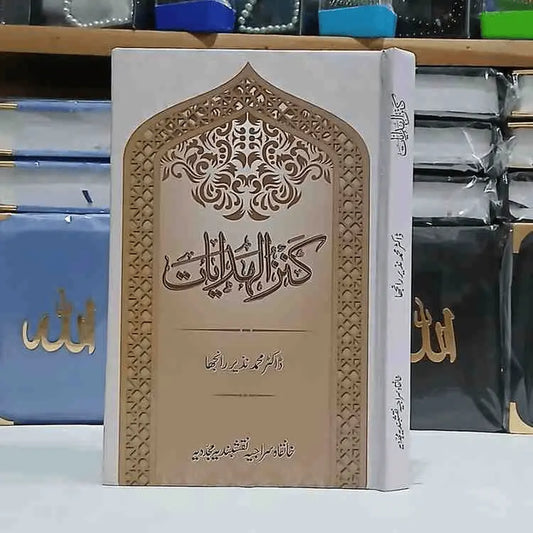 کنز الہدایات
ڈاکٹر محمد نذیر رانجھا
خانقاہ سراجیہ نقشبندیہ مجددیہ
کنز الہدایات
ڈاکٹر محمد نذیر رانجھا
خانقاہ سراجیہ نقشبندیہ مجددیہ
الله
الله